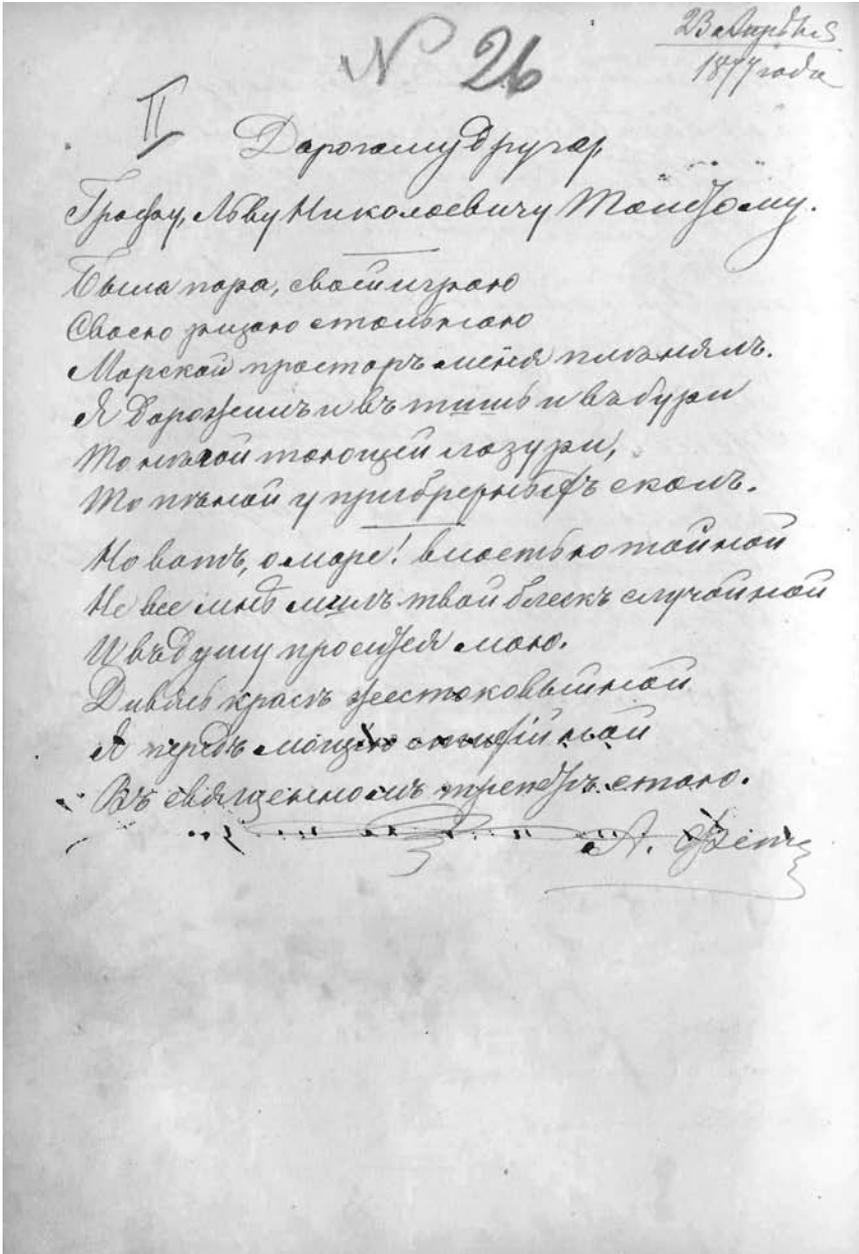 N 26
23 Апрѣля
1877 года
II
Дорогому другу,
Графу, Льву Николаевичу Толстому.
Была пора, своей игрою
Своею ризою стальною
Морской просторъ меня плѣнялъ.
Я дорожилъ и въ тишь и въ бури
То нѣгой тающей лазури,
То пѣной у прибрежныхъ скалъ.
Но вотъ, о море! властью тайной
Не все мнѣ милъ твой блескъ случайной
И въ душу просится мою.
Дивясь красѣ жестоковыйной
Я передъ мощію стихійной
Въ священномъ трепетѣ стою.
А. Фетъ